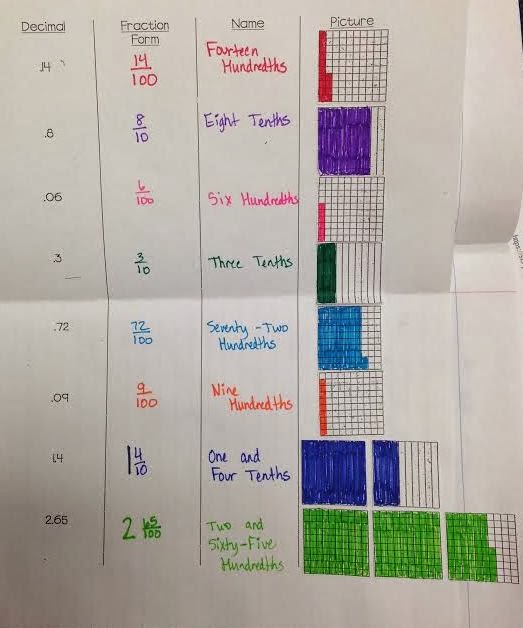 Decimal Fraction Form Name Picture
.14 14/100 Fourteen Hundredths
.8 8/10 Eight Tenths
.06 6/100 Six Hundredths
.3 3/10 Three Tenths
.72 72/100 Seventy-Two Hundredths
.09 9/100 Nine Hundredths
1.4 1 4/10 One and Four Tenths
2.65 2 65/100 Two and Sixty-Five Hundredths